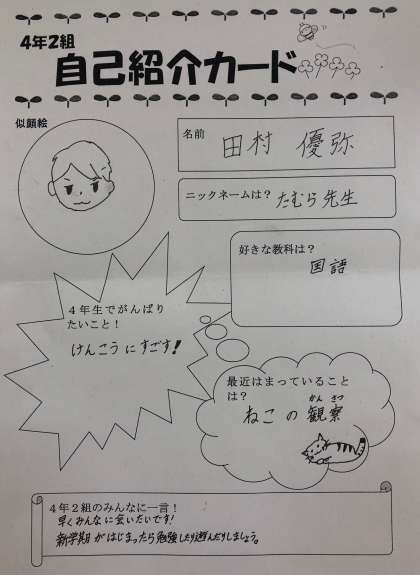 4年2組
自己紹介カード
似顔絵
名前
田村 優弥
ニックネームは?
たむら先生
好きな教科は?
国語
4年生でがんばり
たいこと!
けんこうにすごす!
最近はまっていること
は?
かん さつ
ねこの観察
4年2組のみんなに一言!
早くみんなに会いたいです!
新学期がはじまったら勉強したり遊んだりしましょう。